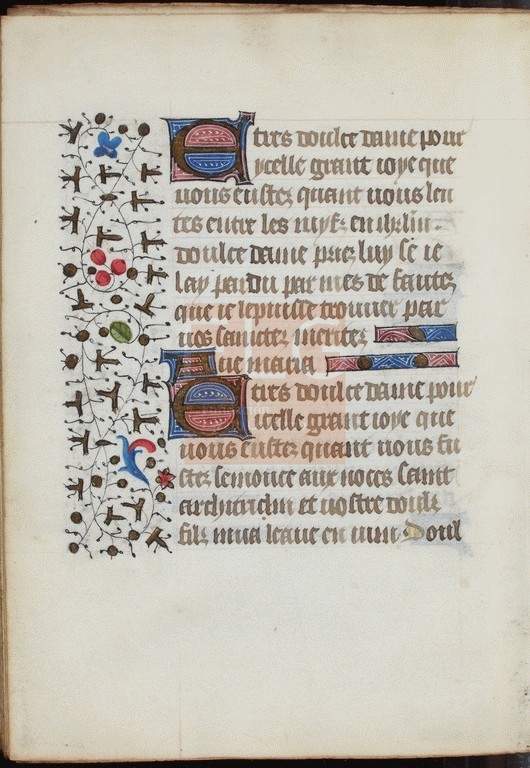 Etres doulce dame pour
ycelle grant ioye que
uous eustez quant uous len
tes entre les iuyfz en ihrlm.
doulce dame priez luy se ie
lay pardu par mes defautez
que ie le puisse trouuer par
uos sainctez meritez
Aue maria
Etres doulce dame pour
icelle grant ioye que
uous eustez quant uous fu
stez semonce aux noces saint
archetriclin et uostre doulz
filz mua leaue en uin. Doul